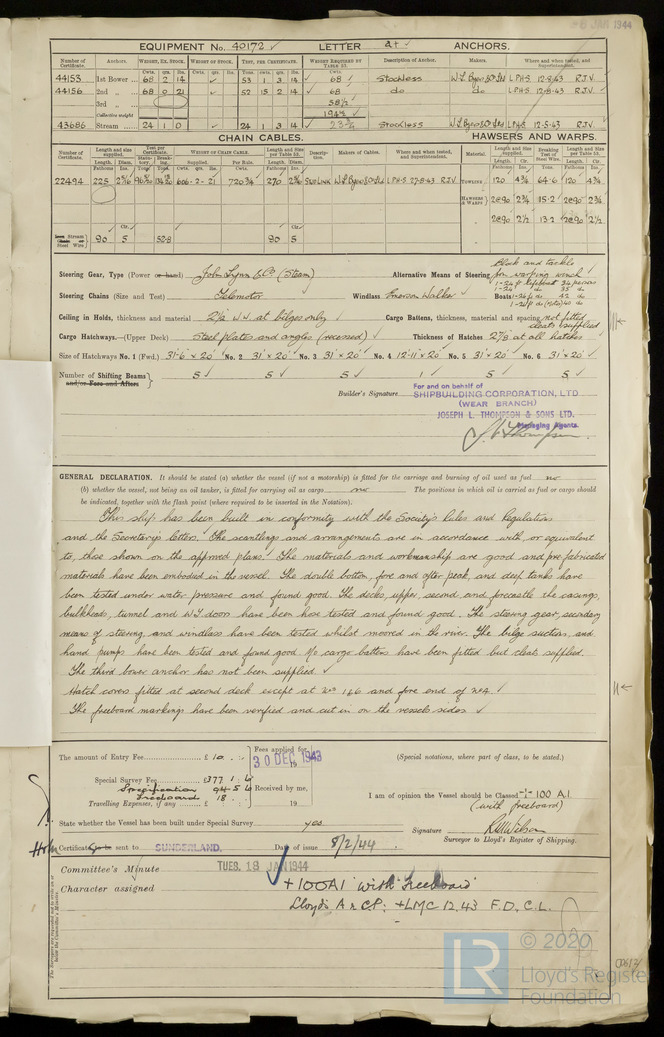 26 JAN 1944
EQUIPMENT No. 40172 ✓ LETTER a+ ✓ ANCHORS.
Number of Certificate. Anchors. WEIGHT, EX. STOCK. WEIGHT OF STOCK. TEST, PER CERTIFICATE. WEIGHT REQUIRED BY TABLE 53. Description of Anchor. Makers. Where and when tested, and Superintendent.
Cwts. qrs. lbs. Cwts. qrs. lbs. Tons. cwts. qrs. lbs. Cwts.
44153 1st Bower 68 2 14 ✓ 53 1 3 14 ✓ 68 ✓ Stockless W.L. Byers & Co Ltd L.P.H.S. 12-8-43 R.J.V.
44156 2nd „ 68 0 21 52 15 2 14 ✓ 68 do do L.P.H.S. 12-8-43 R.J.V.
3rd „ 58½
Collective weight 194½ ✓
43686 Stream 24 1 0 ✓ 24 1 3 14 ✓ 23¾ ✓ Stockless W.L. Byers & Co Ltd L.P.H.S. 12-5-43 R.J.V.
CHAIN CABLES. HAWSERS AND WARPS.
Number of Certificate. Length and size supplied. Test per Certificate. WEIGHT OF CHAIN CABLE. Length and Size per Table 53. Description. Makers of Cables. Where and when tested, and Superintendent. Material. Length and Size supplied. Breaking Test of Steel Wire. Length and Size per Table 53.
Length. Diam. Supplied. Per Rule. Length. Diam. Length. Cir. Length. Cir.
Fathoms Ins. Tons Tons Cwts. qrs. lbs. Cwts. Fathoms Ins. Fathoms Ins. Tons Fathoms Ins.
22494 225 606-2-21 720¾ 270 Stud Link W.L. Byers & Co Ltd L.P.H.S. 27-8-43 R.J.V. TOWLINES 120 4¾ 64·6 120 4¾
HAWSERS & WARPS 2@90 2¾ 15·2 2@90 2¾
2@90 2½ 13·2 2@90 2½
Stream Steel Wire 90 5 52·8 90 5
Block and tackle
Steering Gear, Type (Power or hand) John Lynn & Co (Steam) Alternative Means of Steering for warping winch ✓
Steering Chains (Size and Test) Telemotor Windlass Emerson Walker ✓ Boats
Ceiling in Holds, thickness and material 2½ W.W. at bilges only ✓ Cargo Battens, thickness, material and spacing not fitted
cleats supplied
Cargo Hatchways.—(Upper Deck) Steel plates and angles (recessed) ✓ Thickness of Hatches 2⅞ at all hatches
Size of Hatchways No. 1 (Fwd.) 31'-6 × 20' ✓ No. 2 31' × 20' ✓ No. 3 31' × 20' ✓ No. 4 12'-11 × 20' ✓ No. 5 31' × 20' ✓ No. 6 31' × 20' ✓
Number of Shifting Beams and/or Fores and Afters } 5 ✓ 5 ✓ 5 ✓ 1 ✓ 5 ✓ 5 ✓
For and on behalf of
Builder's Signature SHIPBUILDING CORPORATION, LTD
(WEAR BRANCH)
JOSEPH L. THOMPSON & SONS LTD.
Managing Agents.
GENERAL DECLARATION. It should be stated (a) whether the vessel (if not a motorship) is fitted for the carriage and burning of oil used as fuel no
(b) whether the vessel, not being an oil tanker, is fitted for carrying oil as cargo no The positions in which oil is carried as fuel or cargo should
be indicated, together with the flash point (where required to be inserted in the Notation).
This ship has been built in conformity with the Society's Rules and Regulations
and the Secretary's letters. The scantlings and arrangements are in accordance with, or equivalent
to, those shown on the approved plans. The materials and workmanship are good and pre-fabricated
materials have been embodied in the vessel. The double bottom, fore and after peak, and deep tanks have
been tested under water pressure and found good. The decks, upper, second and forecastle the casings,
bulkheads, tunnel and W.T. doors have been hose tested and found good. The steering gear, secondary
means of steering, and windlass have been tested whilst moored in the river. The bilge suctions, and
hand pumps have been tested and found good. No cargo battens have been fitted but cleats supplied.
The third bower anchor has not been supplied ✓
Hatch covers fitted at second deck except at Nos 1 & 6 and fore end of No 4. ✓
The freeboard markings have been verified and cut in on the vessels sides ✓
The amount of Entry Fee £ 10 Fees applied for 30 DEC 1943 (Special notations, where part of class, to be stated.)
Special Survey Fee £377 : 1 : 6 Received by me,
Specification 94 - 5 - 6
Freeboard 18
Travelling Expenses, if any £ 19 I am of opinion the Vessel should be Classed +100 A1
(with freeboard)
State whether the Vessel has been built under Special Survey yes Signature
Surveyor to Lloyd's Register of Shipping.
Certificate sent to SUNDERLAND. Date of issue 8/2/44
Committee's Minute TUES. 18 JAN 1944
Character assigned +100A1 with freeboard
Lloyd's A & CP: +LMC 12.43 F.D. C.L.
LR © 2020
Lloyd's Register
Foundation